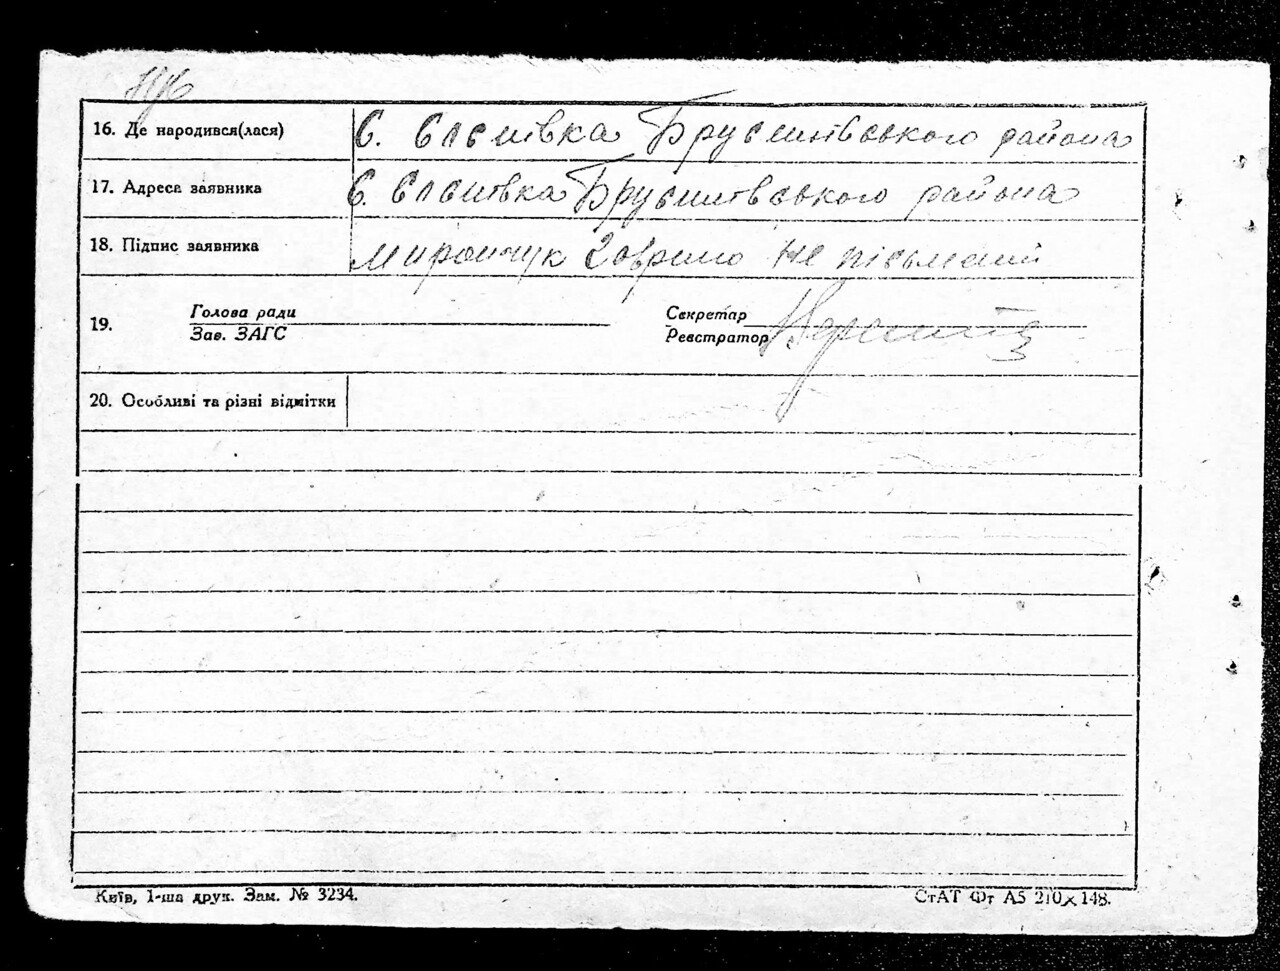 16. Де народився(лася) с. Єлєнівка Брусилівського района
17. Адреса заявника с. Єлєнівка Брусилівського района
18. Підпис заявника Мирончук Гаврило не пісьмений
19. Голова ради Секретар
Зав. ЗАГС Реєстратор
20. Особливі та різні відмітки
Київ, 1-ша друк. Зам. № 3234. СтАТ Фт А5 210х148.